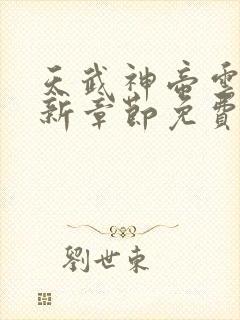 天武神帝雲
新章節免費
劉世東